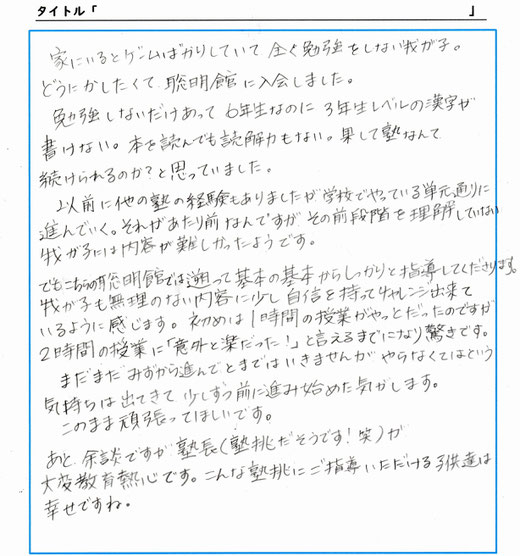 タイトル「 」
家にいるとゲームばかりしていて 全く勉強をしない我が子。
どうにかしたくて、聡明館に入会しました。
勉強しないだけあって 6年生なのに 3年生レベルの漢字が
書けない。本を読んでも読解力もない。果して塾なんて
続けられるのか?と思っていました。
以前に他の塾の経験もありましたが学校でやっている単元通りに
進んでいく。それがあたり前なんですが その前段階を理解していない
我が子には内容が難しかったようです。
でもこちらの聡明館では遡って基本の基本からしっかりと指導してくださります。
我が子も無理のない内容に少し自信を持ってチャレンジ出来て
いるように感じます。初めは1時間の授業がやっとだったのですが
2時間の授業に「意外と楽だった!」と言えるまでになり驚きです。
まだまだ みずから進んでとまではいきませんが やらなくてはという
気持ちは出てきて 少しずつ前に進み始めた気がします。
このまま頑張ってほしいです。
あと、余談ですが 塾長(塾挑だそうです!笑)が
大変教育熱心です。こんな塾挑にご指導いただける子供達は
幸せですね。